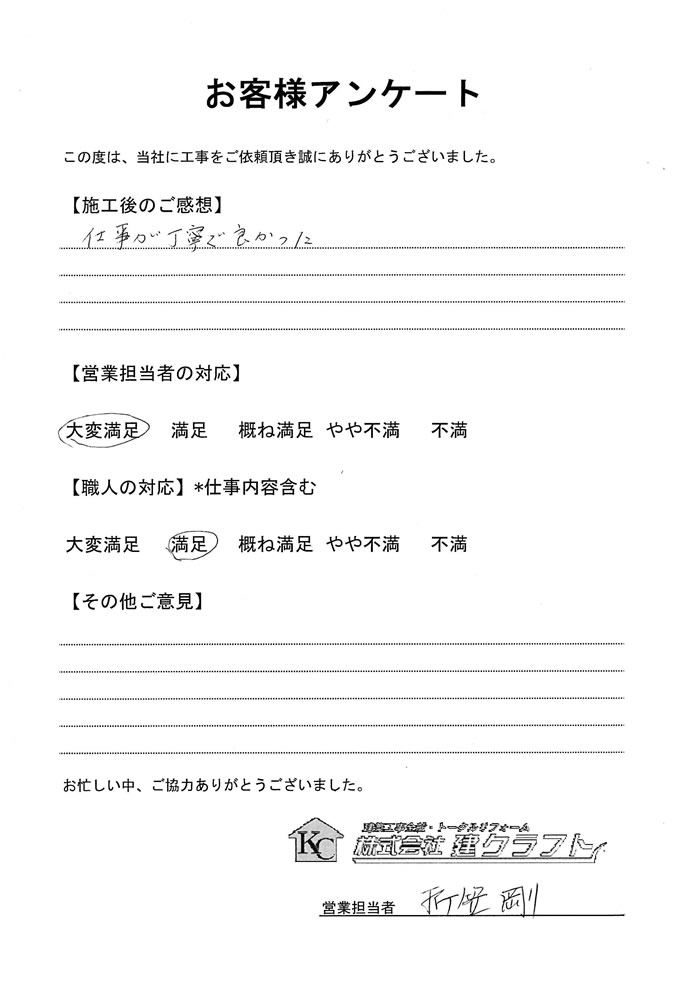 お客様アンケート
この度は、当社に工事をご依頼頂き誠にありがとうございました。
【施工後のご感想】
仕事が丁寧で良かった
【営業担当者の対応】
大変満足 満足 概ね満足 やや不満 不満
【職人の対応】*仕事内容含む
大変満足 満足 概ね満足 やや不満 不満
【その他ご意見】
お忙しい中、ご協力ありがとうございました。
KC
建築工事全般・トータルリフォーム
株式会社 建クラフト
営業担当者 折笠 剛